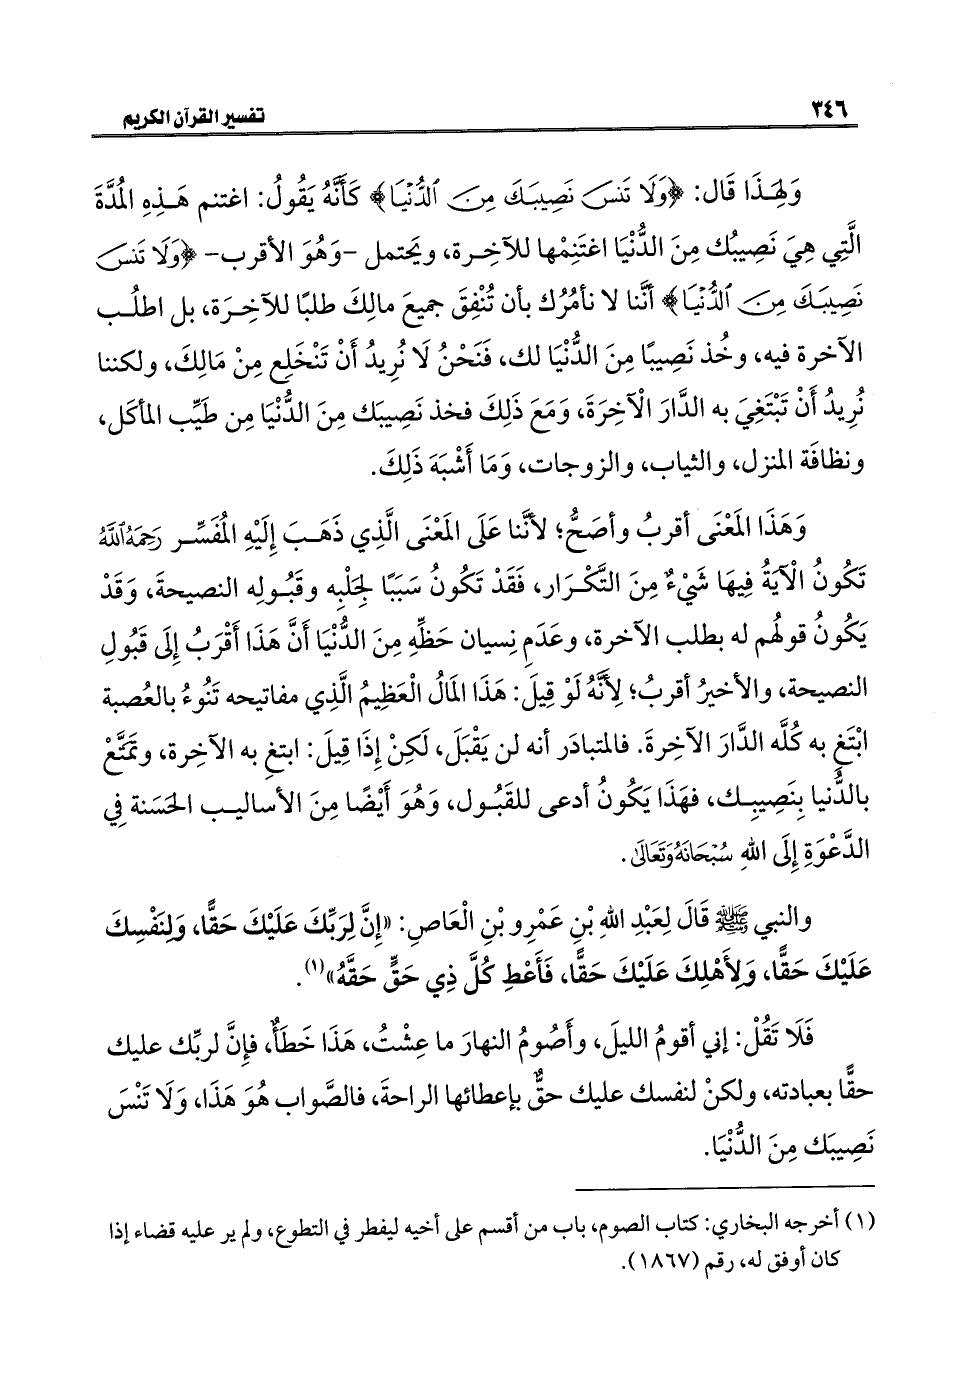 ٣٤٦
تفسير القرآن الكريم
وَلِهَذَا قَال: ﴿وَلَا تَنسَ نَصِيبَكَ مِنَ ٱلدُّنْيَا﴾ كَأَنَّهُ يَقُولُ: اغتنم هَذِهِ المُدَّةَ
الَّتِي هِيَ نَصِيبُك مِنَ الدُّنْيَا اغتَنِمْها للآخِرة، ويحتمل -وَهُوَ الأقرب- ﴿وَلَا تَنسَ
نَصِيبَكَ مِنَ ٱلدُّنْيَا﴾ أنَّنا لا نأمُرُك بأن تُنْفِقَ جميعَ مالِكَ طلبًا للآخِرَة، بل اطلُب
الآخرة فيه، وخُذ نَصِيبًا مِنَ الدُّنْيَا لك، فَنَحْنُ لَا نُرِيدُ أَنْ تَنْخَلِع مِنْ مَالِكَ، ولكننا
نُرِيدُ أَنْ تَبْتَغِيَ به الدَّارَ الْآخِرَةَ، وَمَعَ ذَلِكَ فخذ نَصِيبَك مِنَ الدُّنْيَا مِن طَيِّب المأكَل،
ونظافَة المنزل، والثياب، والزوجات، وَمَا أَشْبَهَ ذَلِكَ.
وَهَذَا المَعْنَى أقربُ وأصَحُّ؛ لأنَّنا عَلَى المَعْنَى الَّذِي ذَهَبَ إِلَيْهِ المُفَسِّر رَحِمَهُ ٱللَّهُ
تَكُونُ الْآيَةُ فِيهَا شَيْءٌ مِنَ التَّكْرَار، فَقَدْ تَكُونُ سَبَبًا لِجَلْبِه وقَبُولِه النصيحةَ، وَقَدْ
يَكُونُ قولهُم له بطلب الآخرة، وعَدَمِ نِسيان حَظِّهِ مِنَ الدُّنْيَا أَنَّ هَذَا أَقْرَبُ إِلَى قَبُولِ
النصيحة، والأخيرُ أقربُ؛ لِأَنَّهُ لَوْ قِيلَ: هَذَا المَالُ الْعَظِيمُ الَّذِي مفاتيحه تَنُوءُ بالعُصبة
ابْتَغِ به كُلَّه الدَّارَ الآخِرةَ. فالمتبادَر أنه لن يَقْبَلَ، لَكِنْ إِذَا قِيلَ: ابتغِ به الآخِرة، وتمَتَّعْ
بالدُّنيا بِنَصِيبِك، فهَذَا يَكُونُ أدعى للقَبُول، وَهُوَ أَيْضًا مِنَ الأساليب الحَسَنة فِي
الدَّعْوَةِ إِلَى اللهِ سُبْحَانَهُ وَتَعَالَىٰ.
والنبي ﷺ قَالَ لِعَبْدِ اللهِ بْنِ عَمْرِو بْنِ الْعَاصِ: «إِنَّ لِرَبِّكَ عَلَيْكَ حَقًّا، وَلِنَفْسِكَ
عَلَيْكَ حَقًّا، وَلِأَهْلِكَ عَلَيْكَ حَقًّا، فَأَعْطِ كُلَّ ذِي حَقٍّ حَقَّهُ»(١).
فَلَا تَقُلْ: إني أقومُ الليلَ، وأَصُومُ النهارَ ما عِشْتُ، هَذَا خَطَأٌ، فإنَّ لربِّك عليك
حقًّا بعبادته، ولكنْ لنفسك عليك حقٌّ بإعطائها الراحةَ، فالصَّواب هُوَ هَذَا، وَلَا تَنْسَ
نَصِيبَك مِنَ الدُّنْيَا.
(١) أخرجه البخاري: كتاب الصوم، باب من أقسم على أخيه ليفطر في التطوع، ولم ير عليه قضاء إذا
كان أوفق له، رقم (١٨٦٧).